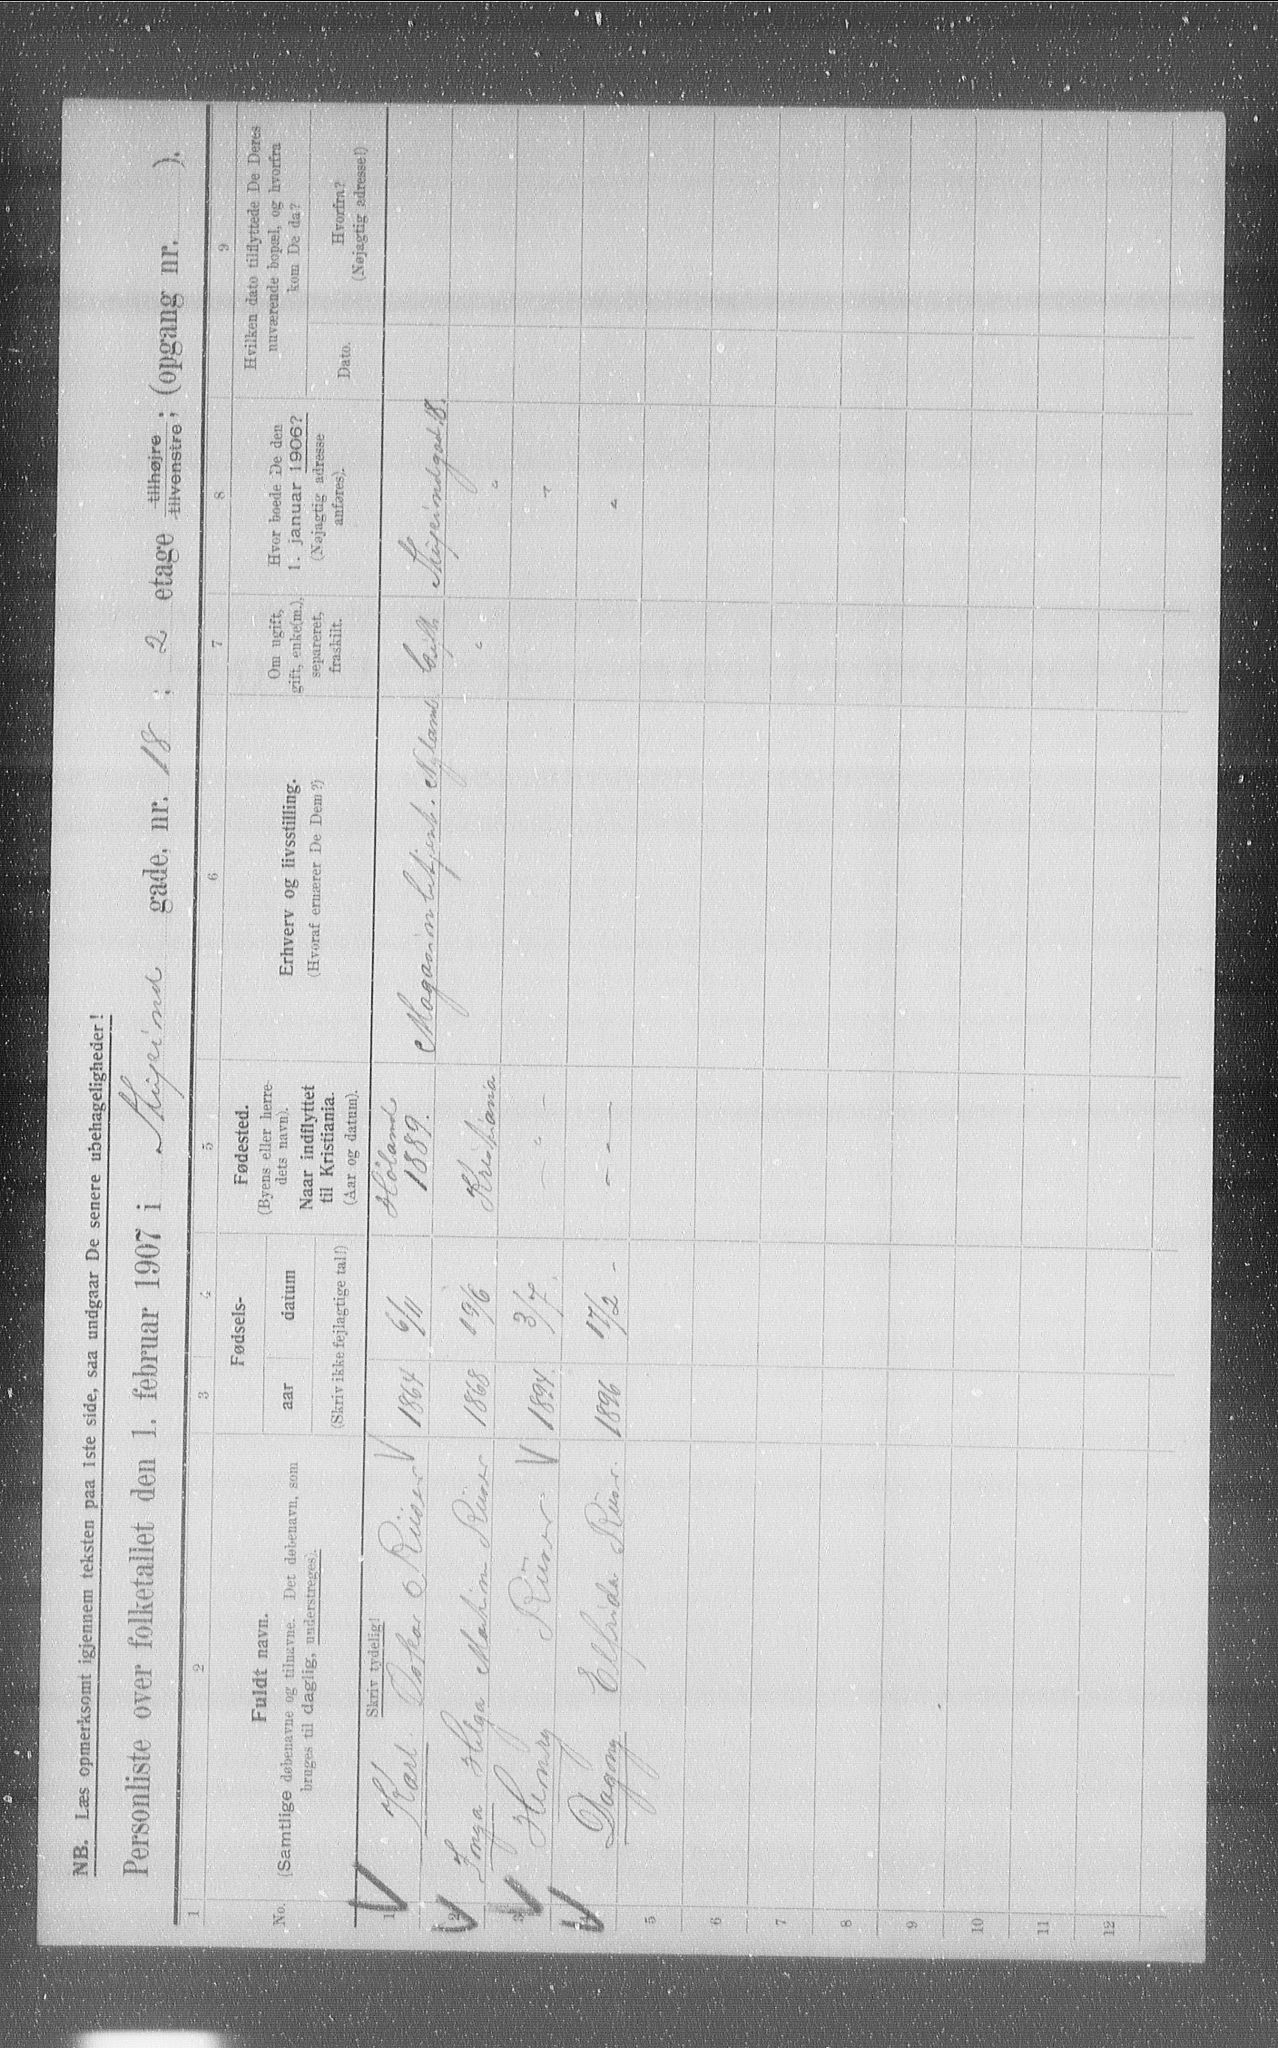 NB. Læs opmerksomt igjennem teksten paa 1ste side, saa undgaar De senere ubehageligheder!
Personliste over folketallet den 1. februar 1907 i Sigurd gade, nr. 18 ; 2 etage tilhøjre / tilvenstre ; (opgang nr. ).
1 2 3 4 5 6 7 8 9
No. Fuldt navn. (Samtlige døbenavne og tilnavne. Det døbenavn, som bruges til daglig, understreges). Skriv tydelig!
Fødsels- aar datum (Skriv ikke fejlagtige tal!)
Fødested. (Byens eller herredets navn). Naar indflyttet til Kristiania. (Aar og datum).
Erhverv og livsstilling. (Hvoraf ernærer De Dem?)
Om ugift, gift, enke(m.), separeret, fraskilt.
Hvor boede De den 1. januar 1906? (Nøjagtig adresse anføres).
Hvilken dato tilflyttede De Deres nuværende bopæl, og hvorfra kom De da? Dato. Hvorfra? (Nøjagtig adresse!)
1 Karl Oskar Riiser 1864 6/11 Høland 1889. Magasinbetjent. Nyland Gift 18.
2 Inga Helga Riiser 1868 19/6 Kristiania " "
3 Henry Riiser 1894. 3/7. - " - "
4 Dagny Elfrida Riiser. 1896 17/2 - - - "
5
6
7
8
9
10
11
12